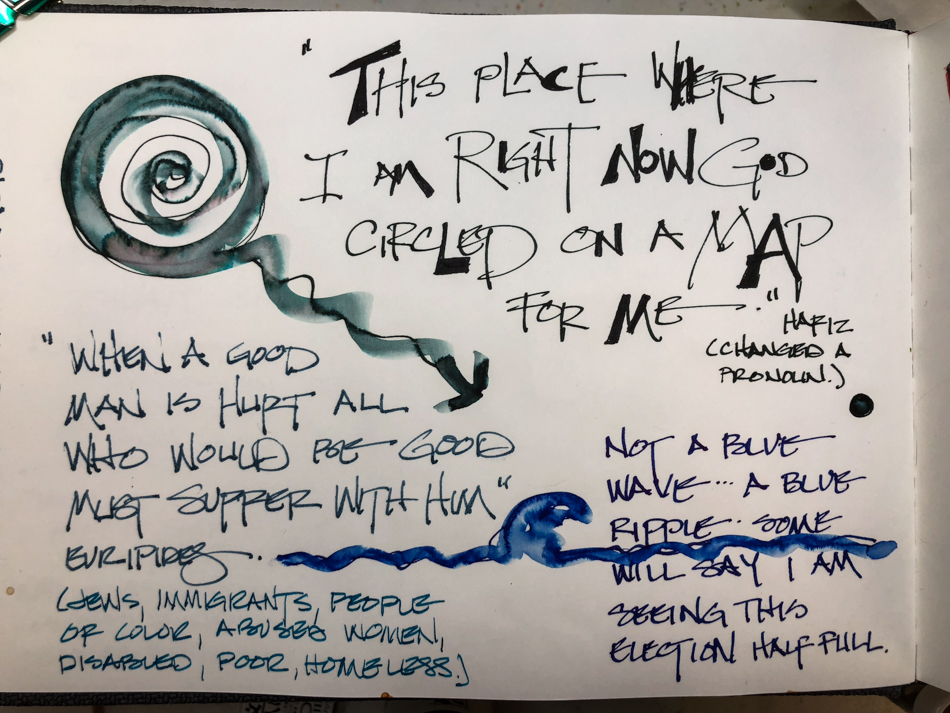 "THIS PLACE WHERE
I AM RIGHT NOW GOD
CIRCLED ON A MAP
FOR ME—."
HAFIZ
(CHANGED A
PRONOUN.)
"WHEN A GOOD
MAN IS HURT ALL
WHO WOULD BE GOOD
MUST SUFFER WITH HIM"
EURIPIDES..
(JEWS, IMMIGRANTS, PEOPLE
OF COLOR, ABUSED WOMEN,
DISABLED, POOR, HOMELESS.)
NOT A BLUE
WAVE... A BLUE
RIPPLE. SOME
WILL SAY I AM
SEEING THIS
ELECTION HALF FULL.